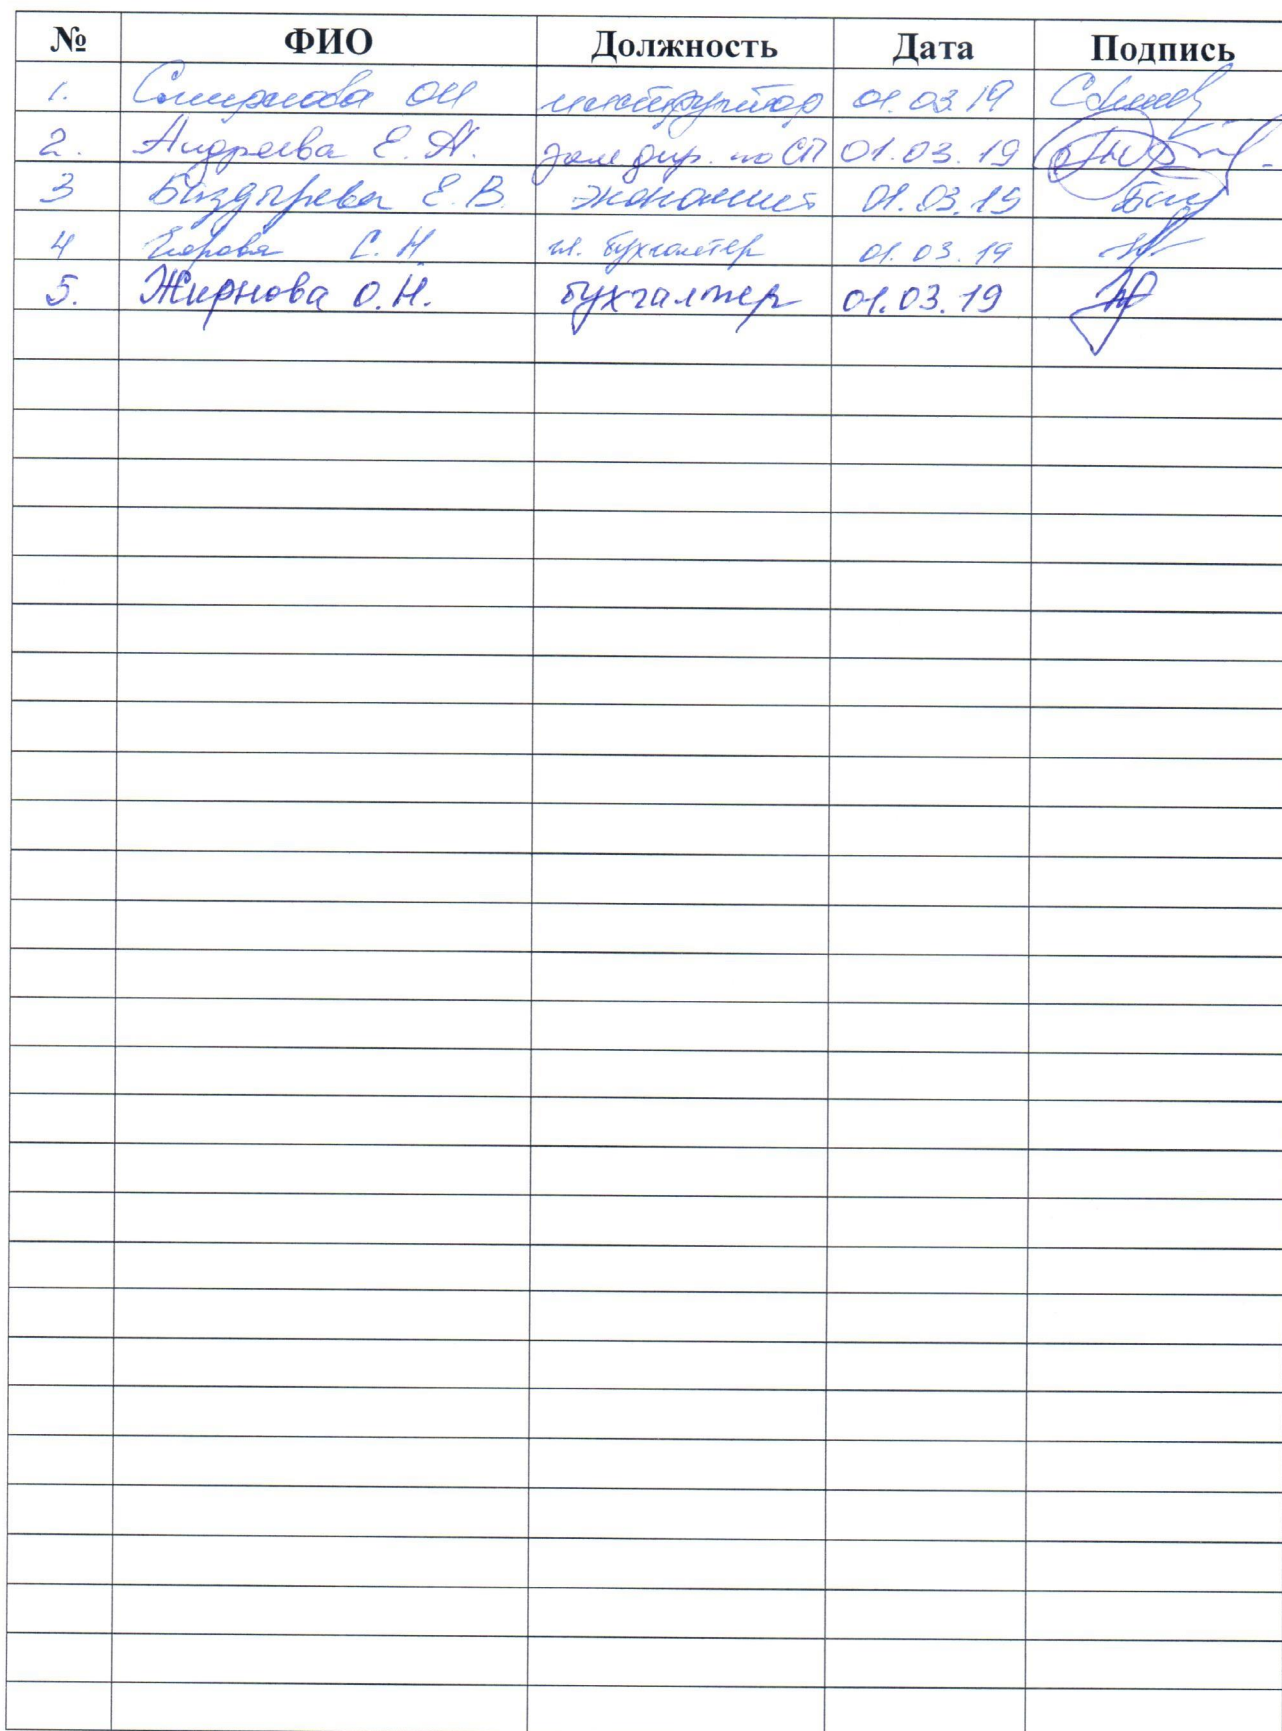 № ФИО Должность Дата Подпись
1. Смирнова ОН инструктор 01.03.19
2. Андреева Е. А. зам дир. по СП 01.03.19
3 Е. В. экономист 01.03.19
4 С. Н гл. бухгалтер 01.03.19
5. Жирнова О.Н. бухгалтер 01.03.19